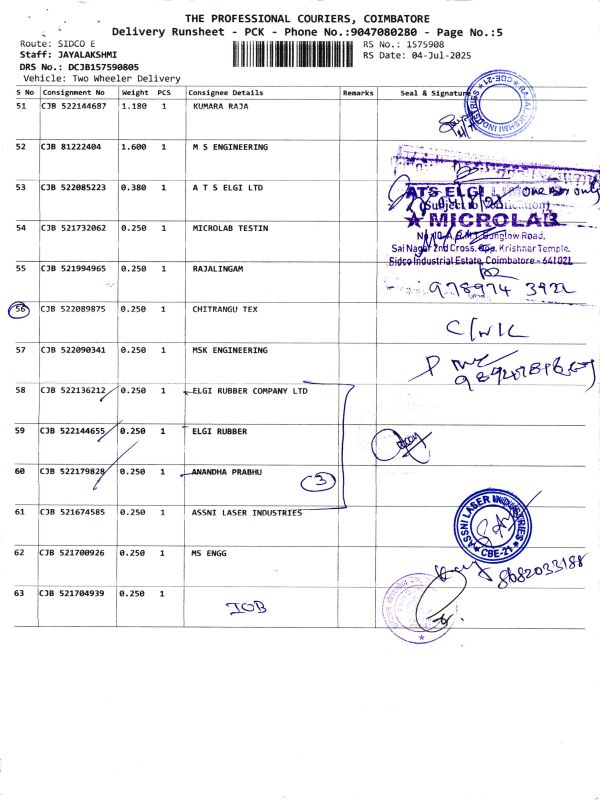 THE PROFESSIONAL COURIERS, COIMBATORE
Delivery Runsheet - PCK - Phone No.:9047080280 - Page No.:5
Route: SIDCO E
RS No.: 1575908
Staff: JAYALAKSHMI
RS Date: 04-Jul-2025
DRS No.: DCJB157590805
Vehicle: Two Wheeler Delivery
S No Consignment No Weight PCS Consignee Details Remarks Seal & Signature
51 CJB 522144687 1.180 1 KUMARA RAJA
RAJALAKSHMI INDUSTRIES CBE-21
52 CJB 81222404 1.600 1 M S ENGINEERING
53 CJB 522085223 0.380 1 A T S ELGI LTD
ATS ELGI one box only
54 CJB 521732062 0.250 1 MICROLAB TESTIN
MICROLAB
Sai Nagar 2nd Cross, Opp. Krishnar Temple,
Sidco Industrial Estate, Coimbatore - 641021
55 CJB 521994965 0.250 1 RAJALINGAM
56 CJB 522089875 0.250 1 CHITRANGU TEX
57 CJB 522090341 0.250 1 MSK ENGINEERING
58 CJB 522136212 0.250 1 ELGI RUBBER COMPANY LTD
59 CJB 522144655 0.250 1 ELGI RUBBER
60 CJB 522179828 0.250 1 ANANDHA PRABHU
3
61 CJB 521674585 0.250 1 ASSNI LASER INDUSTRIES
ASSNI LASER INDUSTRIES CBE-21
62 CJB 521700926 0.250 1 MS ENGG
8682033188
63 CJB 521704939 0.250 1
IOB